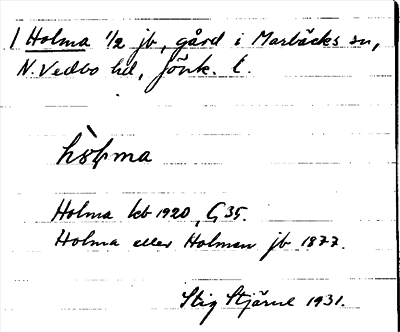 1 Holma 1/2 jb, gård i Marbäcks sn,
N. Vedbo hd, Jönk. l.
Holma kb 1920, G35.
Holma eller Holmen jb 1877.
Stig Stjärne 1931.